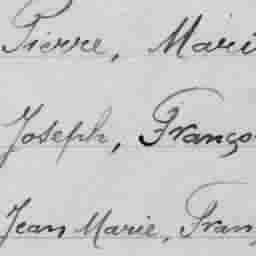 Pierre, Mari
Joseph, Franço
Jean Marie, Fran